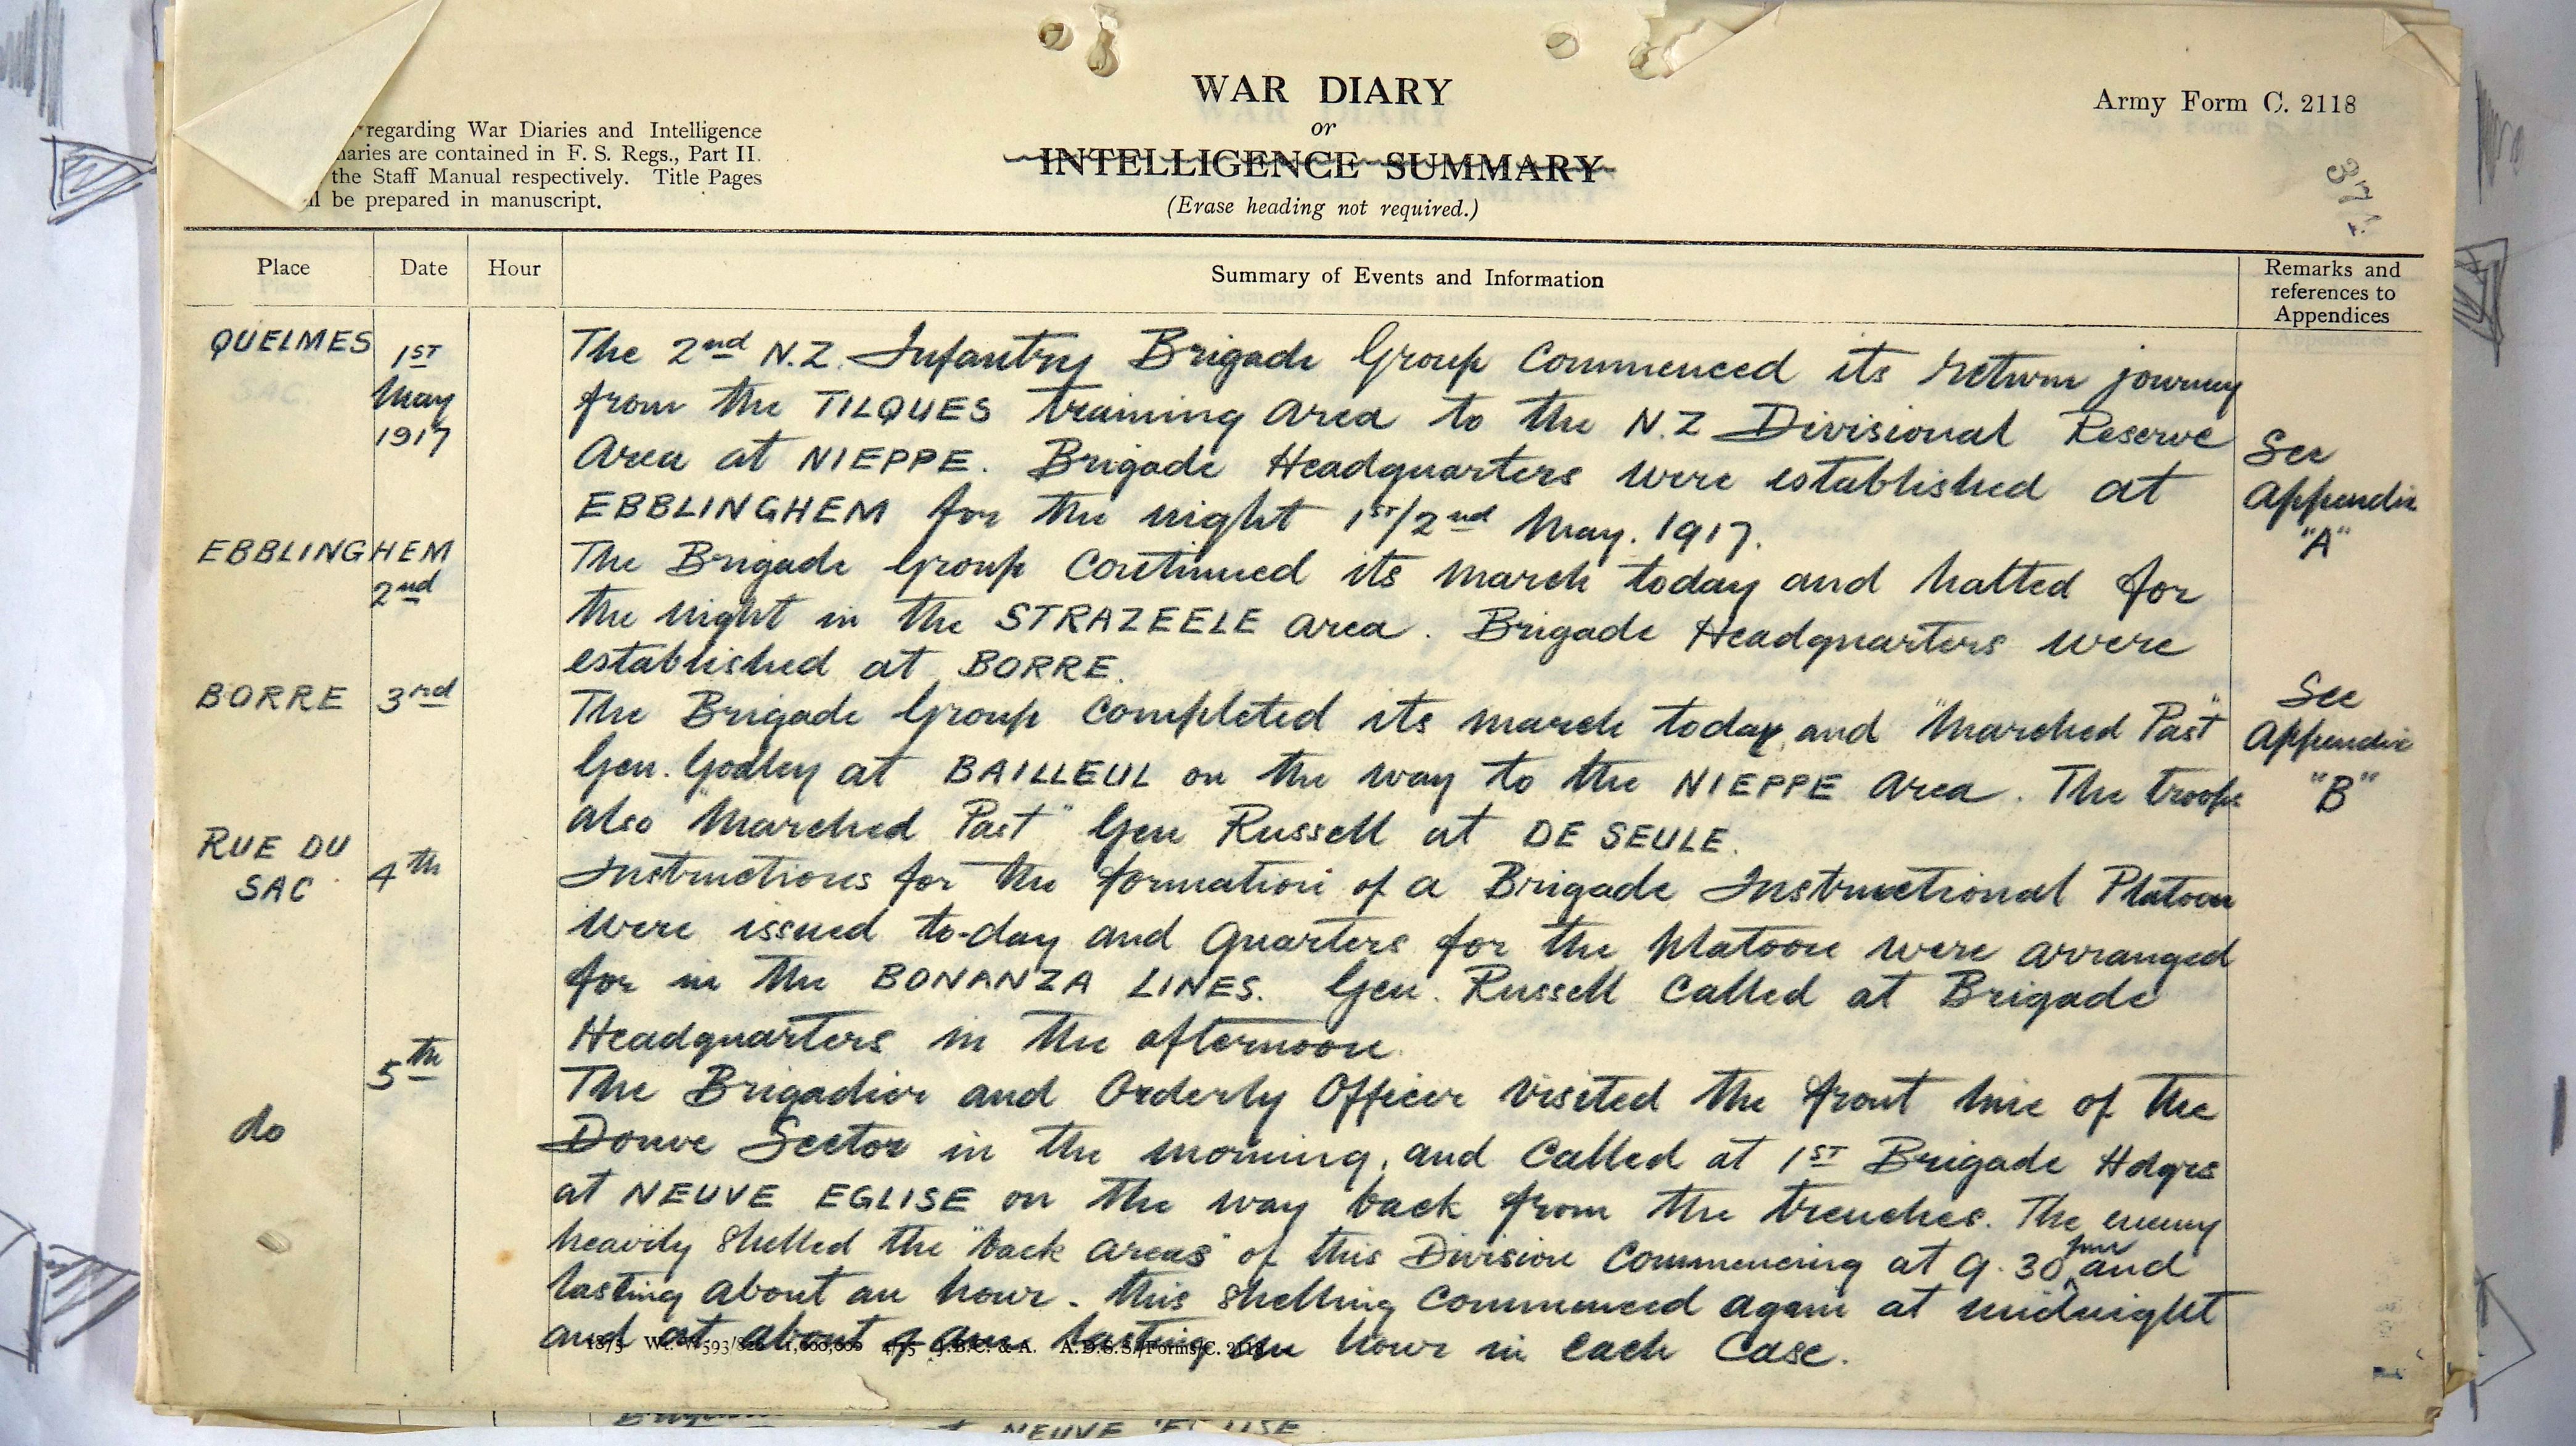 WAR DIARY
or
INTELLIGENCE SUMMARY
(Erase heading not required.)
Army Form C. 2118
regarding War Diaries and Intelligence
maries are contained in F. S. Regs., Part II.
the Staff Manual respectively. Title Pages
be prepared in manuscript.
Place
Date
Hour
Summary of Events and Information
Remarks and
references to
Appendices
QUELMES
1ST
May
1917
The 2nd N.Z. Infantry Brigade Group commenced its return journey
from the TILQUES training area to the N.Z Divisional Reserve
Area at NIEPPE. Brigade Headquarters were established at
EBBLINGHEM for the night 1ST/2nd May. 1917.
See
Appendix
"A"
EBBLINGHEM
2nd
The Brigade Group continued its march today and halted for
the night in the STRAZEELE area. Brigade Headquarters were
established at BORRE.
BORRE
3rd
The Brigade Group completed its march today, and "Marched Past"
Gen. Godley at BAILLEUL on the way to the NIEPPE area. The troops
also "Marched Past" Gen Russell at DE SEULE.
See
Appendix
"B"
RUE DU
SAC
4th
Instructions for the formation of a Brigade Instructional Platoon
were issued to-day and quarters for the Platoon were arranged
for in the BONANZA LINES. Gen. Russell called at Brigade
Headquarters in the afternoon.
do
5th
The Brigadier and Orderly Officer visited the front line of the
Douve Sector in the morning, and called at 1ST Brigade Hdqrs
at NEUVE EGLISE on the way back from the trenches. The enemy
heavily shelled the "back areas" of this Division commencing at 9.30 pm and
lasting about an hour. this shelling commenced again at midnight
and at about am lasting an hour in each case.
1875 Wt. W593/826 1,000,000 4/15 J.B.C. & A. A.D.S.S./Forms/C. 2118
NEUVE EGLISE